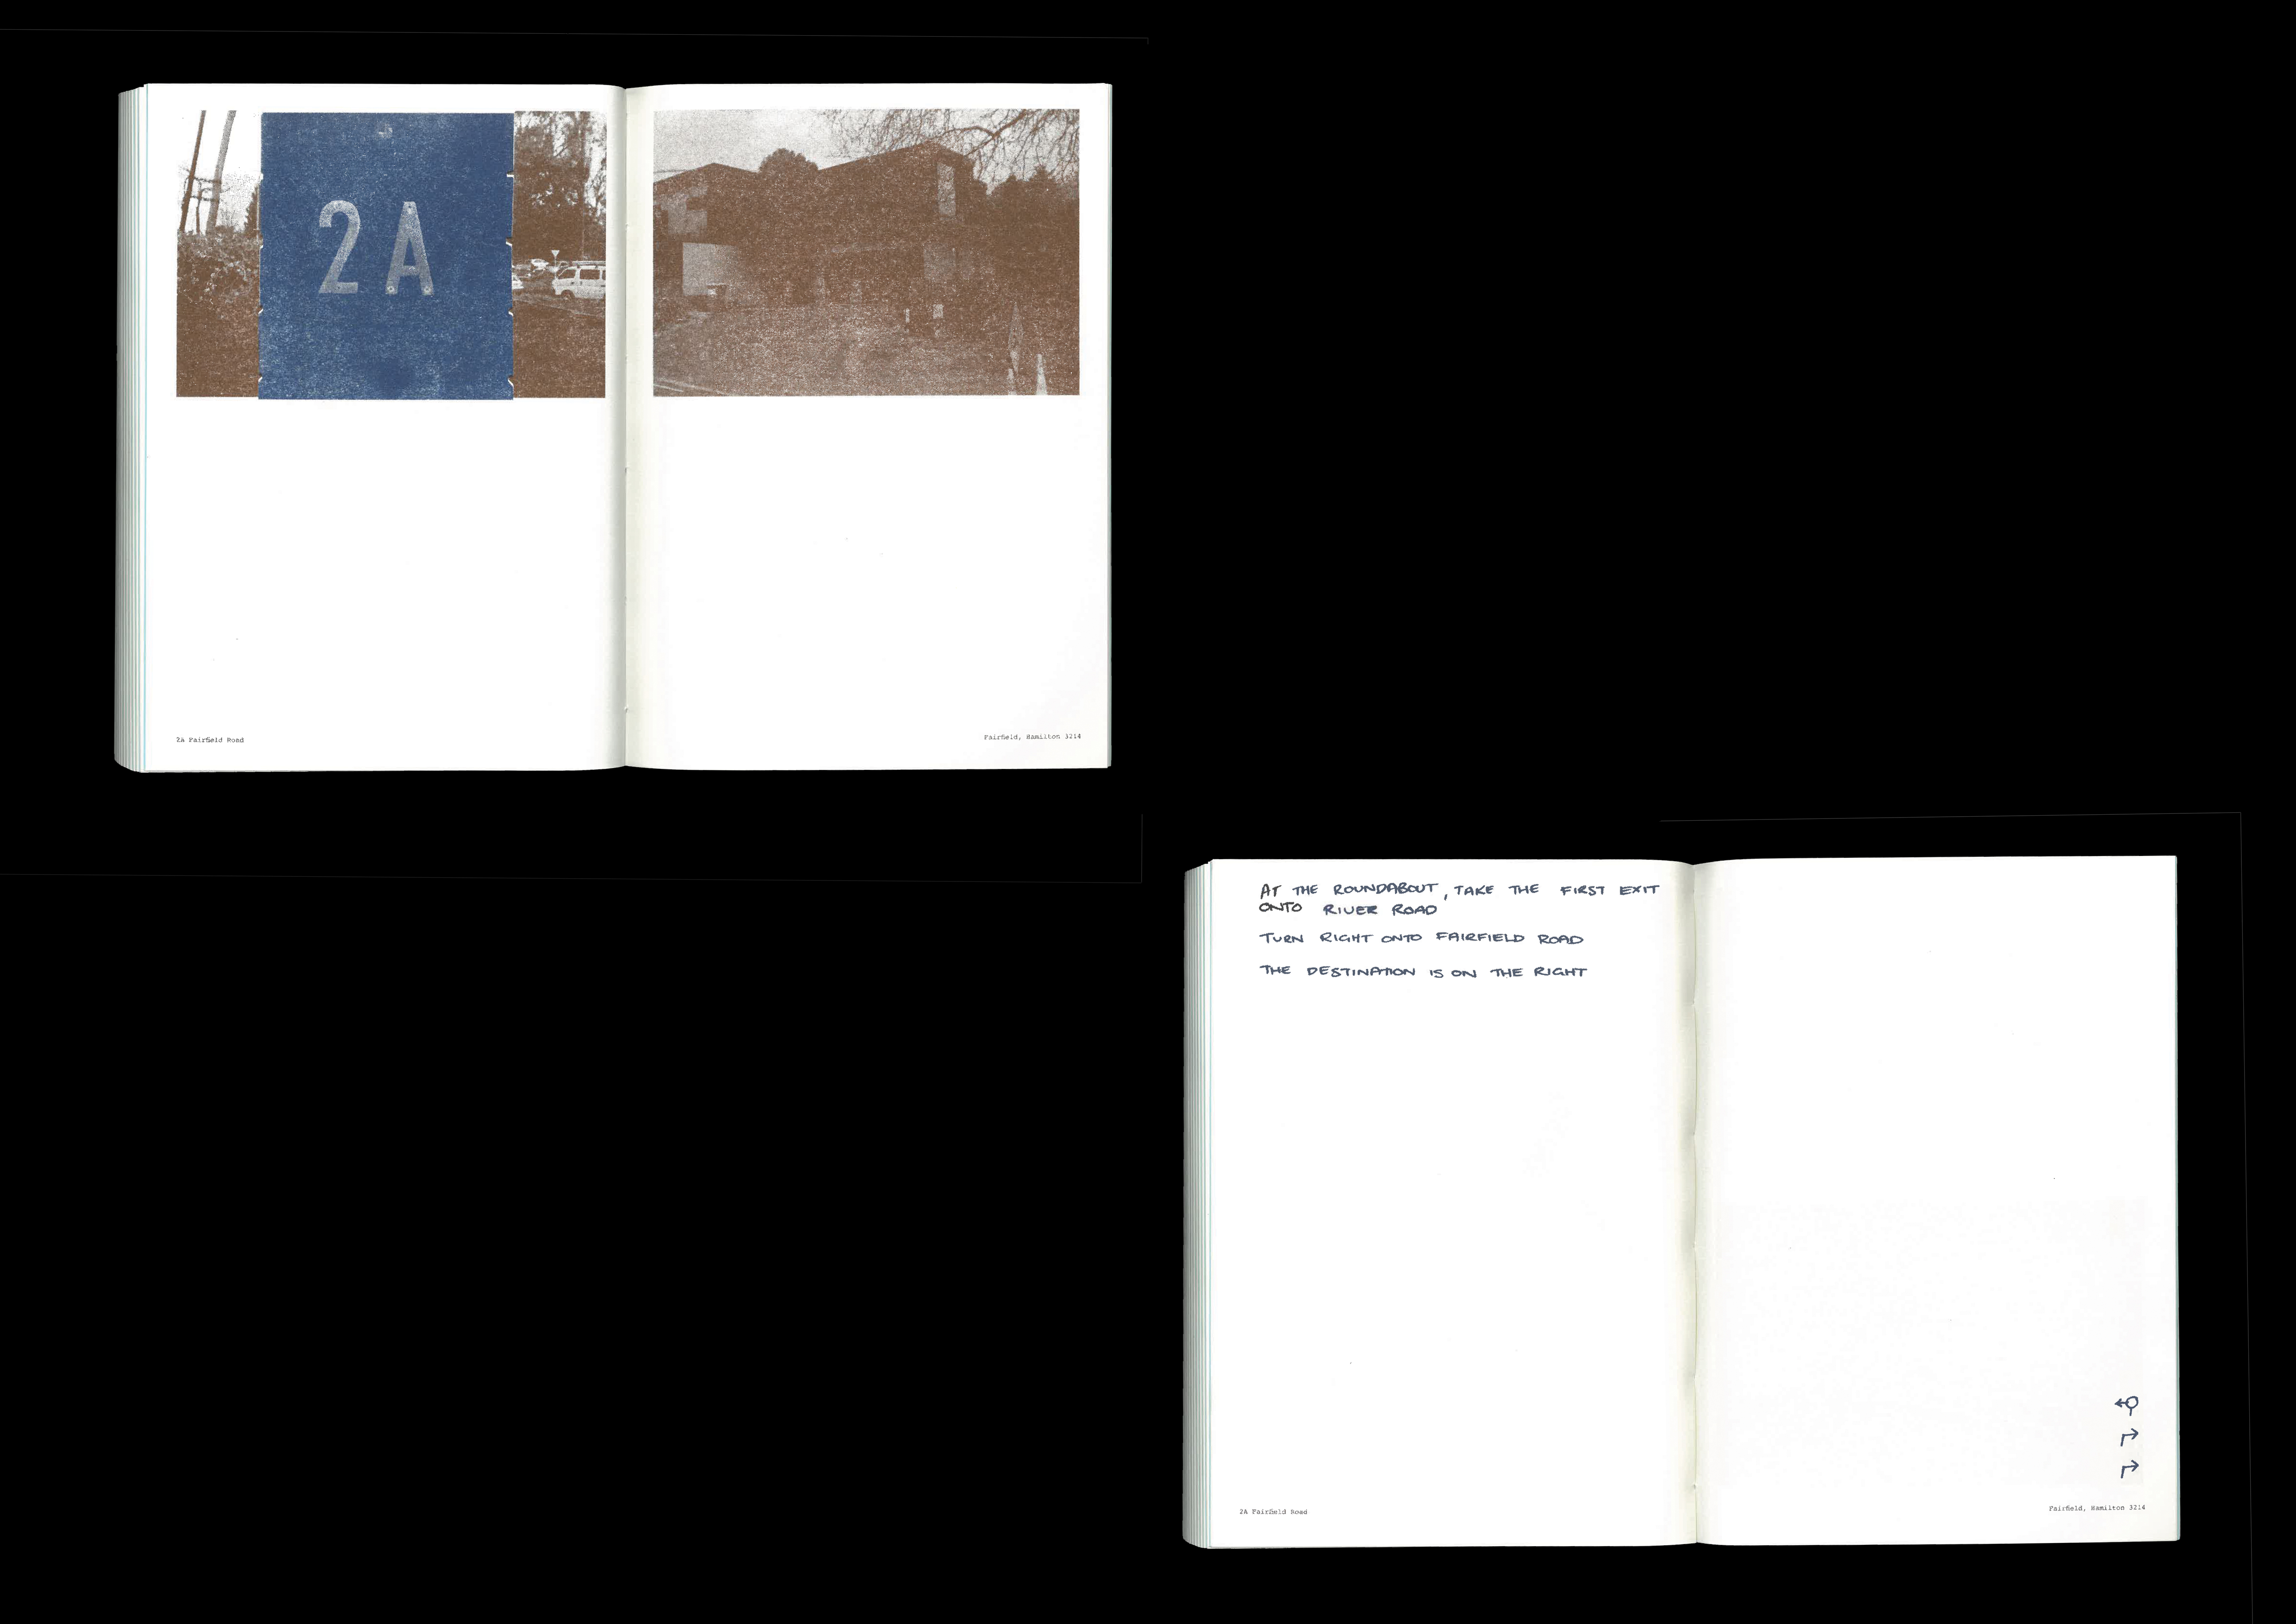 2A
2A Fairfield Road
Fairfield, Hamilton 3214
AT THE ROUNDABOUT, TAKE THE FIRST EXIT
ONTO RIVER ROAD
TURN RIGHT ONTO FAIRFIELD ROAD
THE DESTINATION IS ON THE RIGHT
2A Fairfield Road
Fairfield, Hamilton 3214